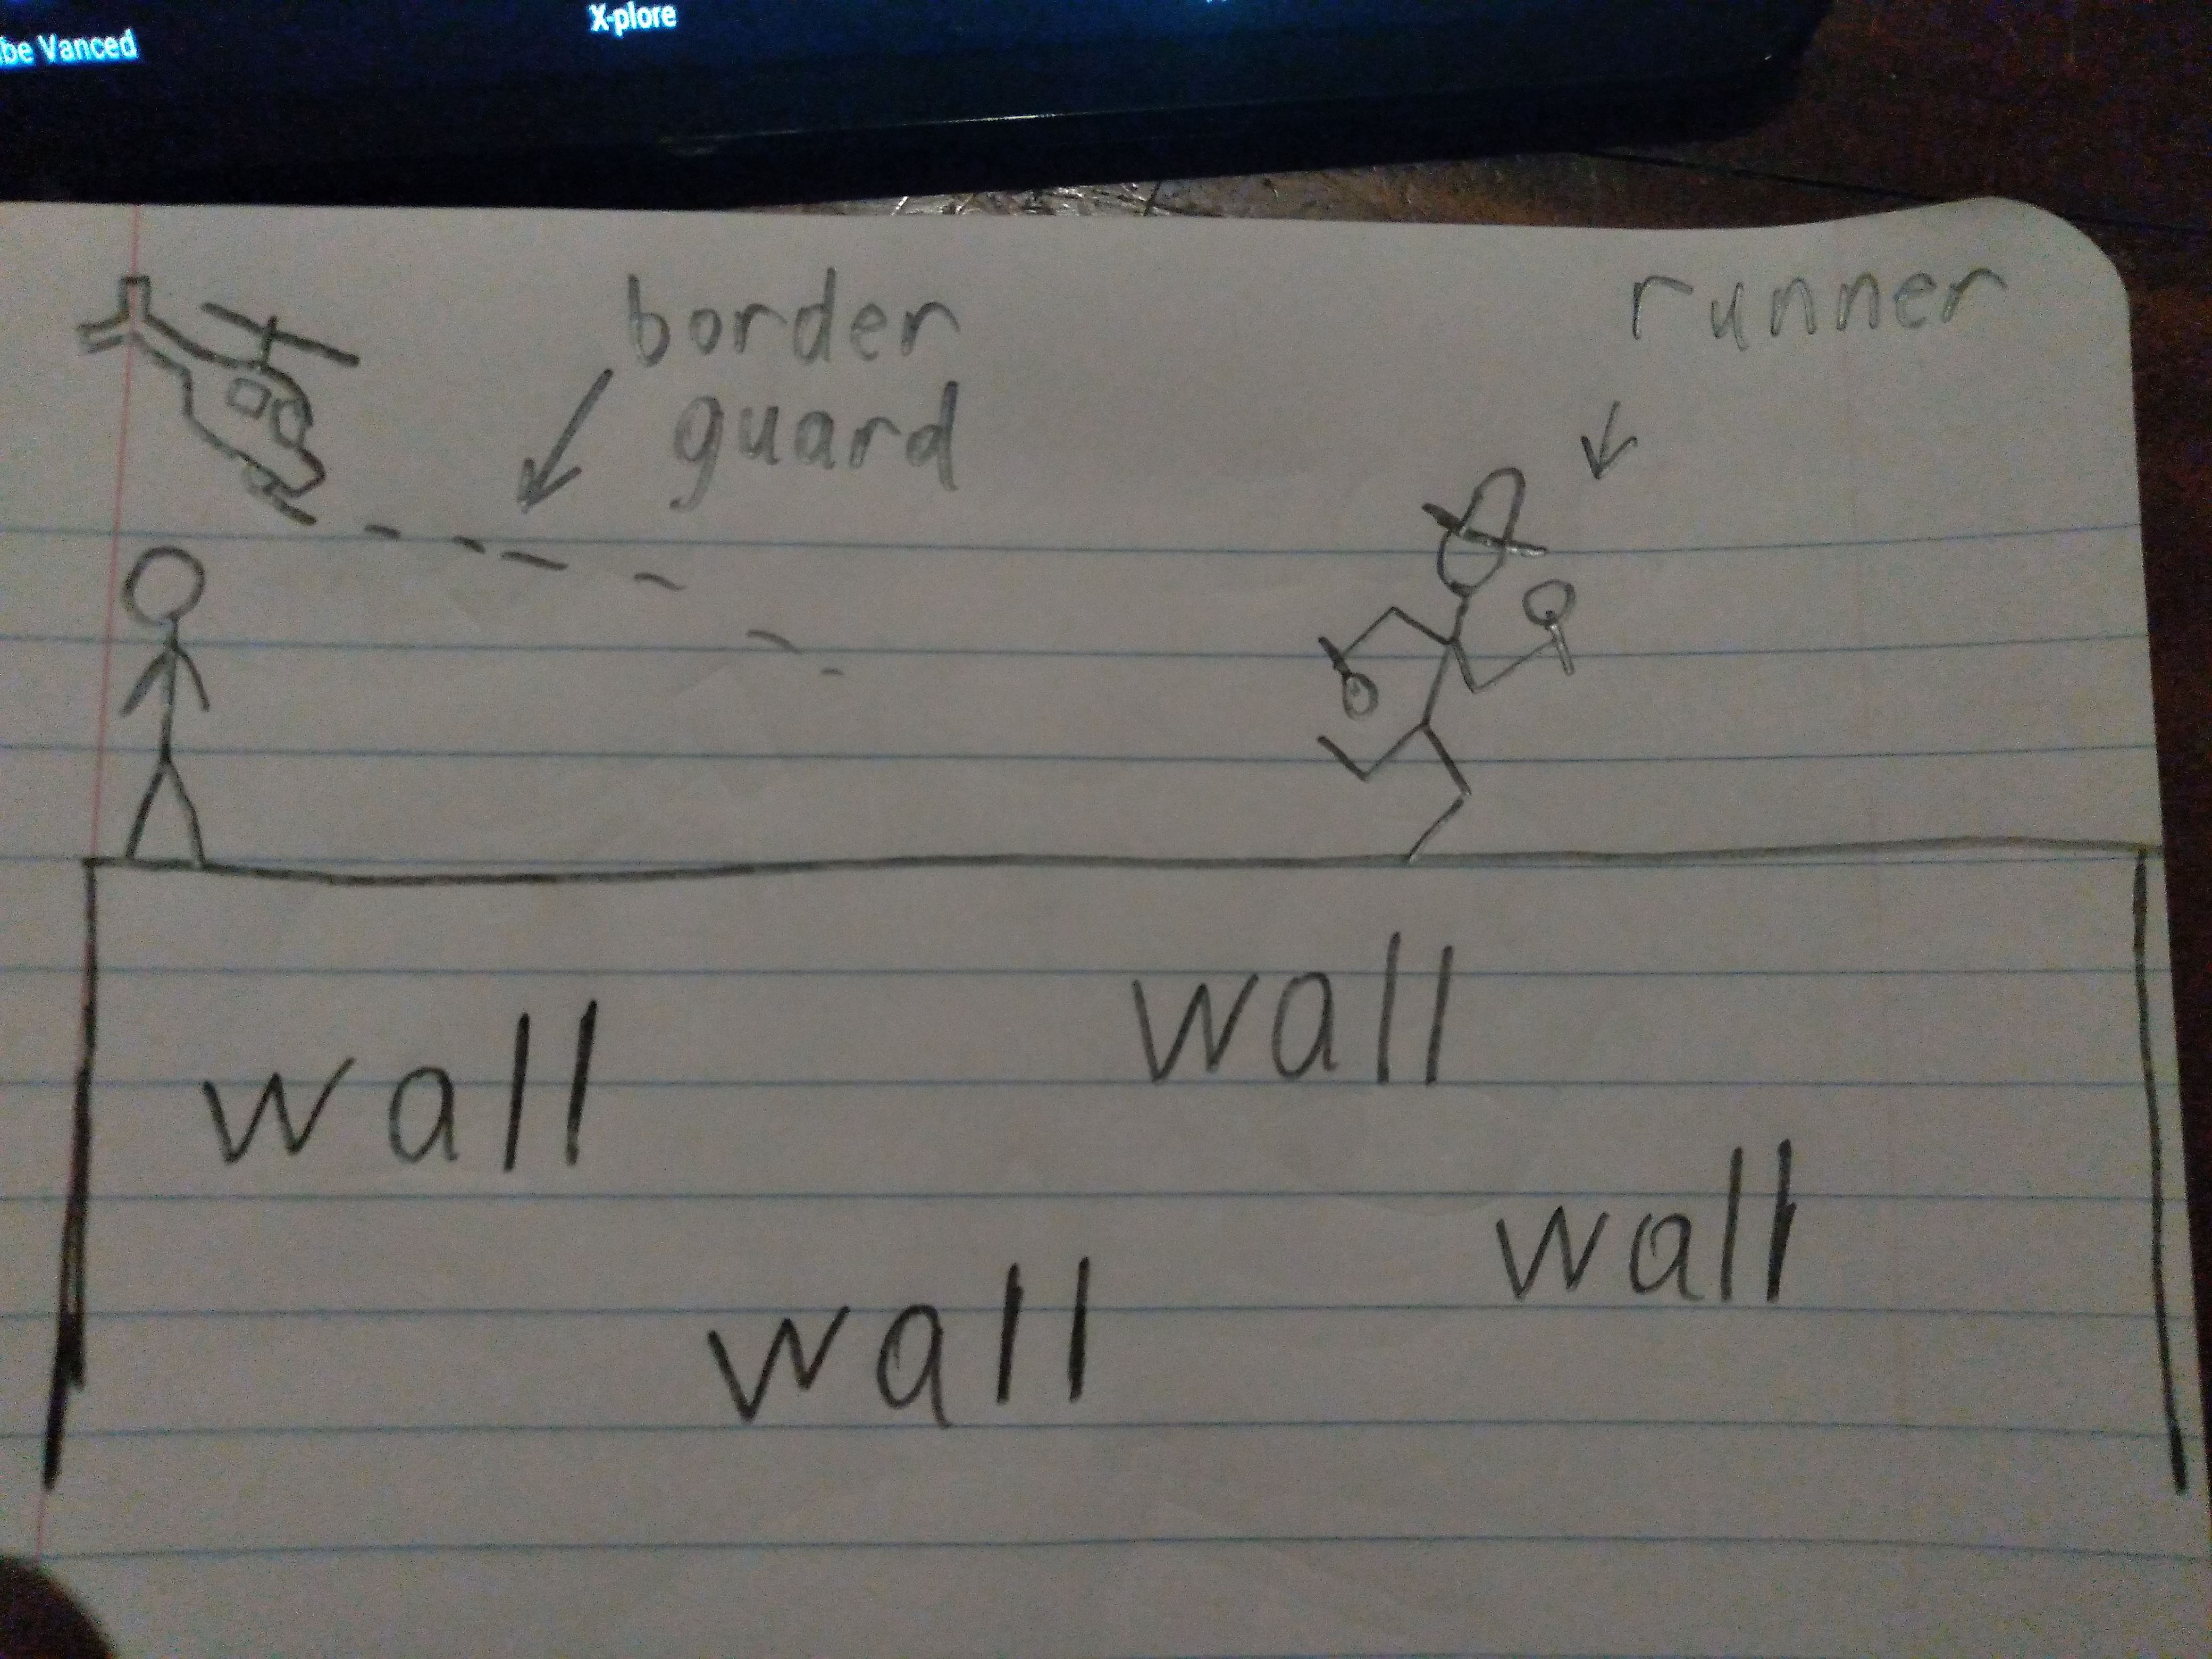 be Vanced
X-plore
border
guard
runner
wall
wall
wall
wall